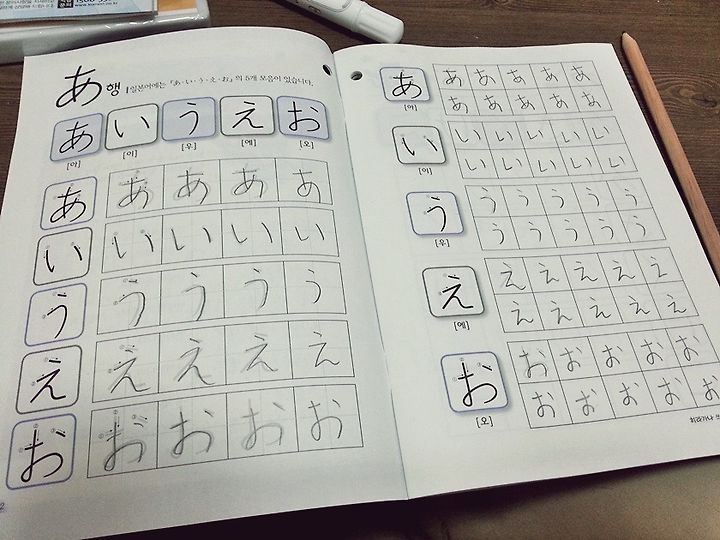 あ행 일본어에는 『あ·い·う·え·お』의 5개 모음이 있습니다.
あ い う え お
[아] [이] [우] [에] [오]
あ あ あ あ あ
い い い い い
う う う う う
え え え え え
お お お お お
あ あ あ あ あ あ
[아] あ あ あ あ あ
い い い い い い
[이] い い い い い
う う う う う う
[우] う う う う う
え え え え え え
[에] え え え え え
お お お お お お
[오] お お お お お
히라가나